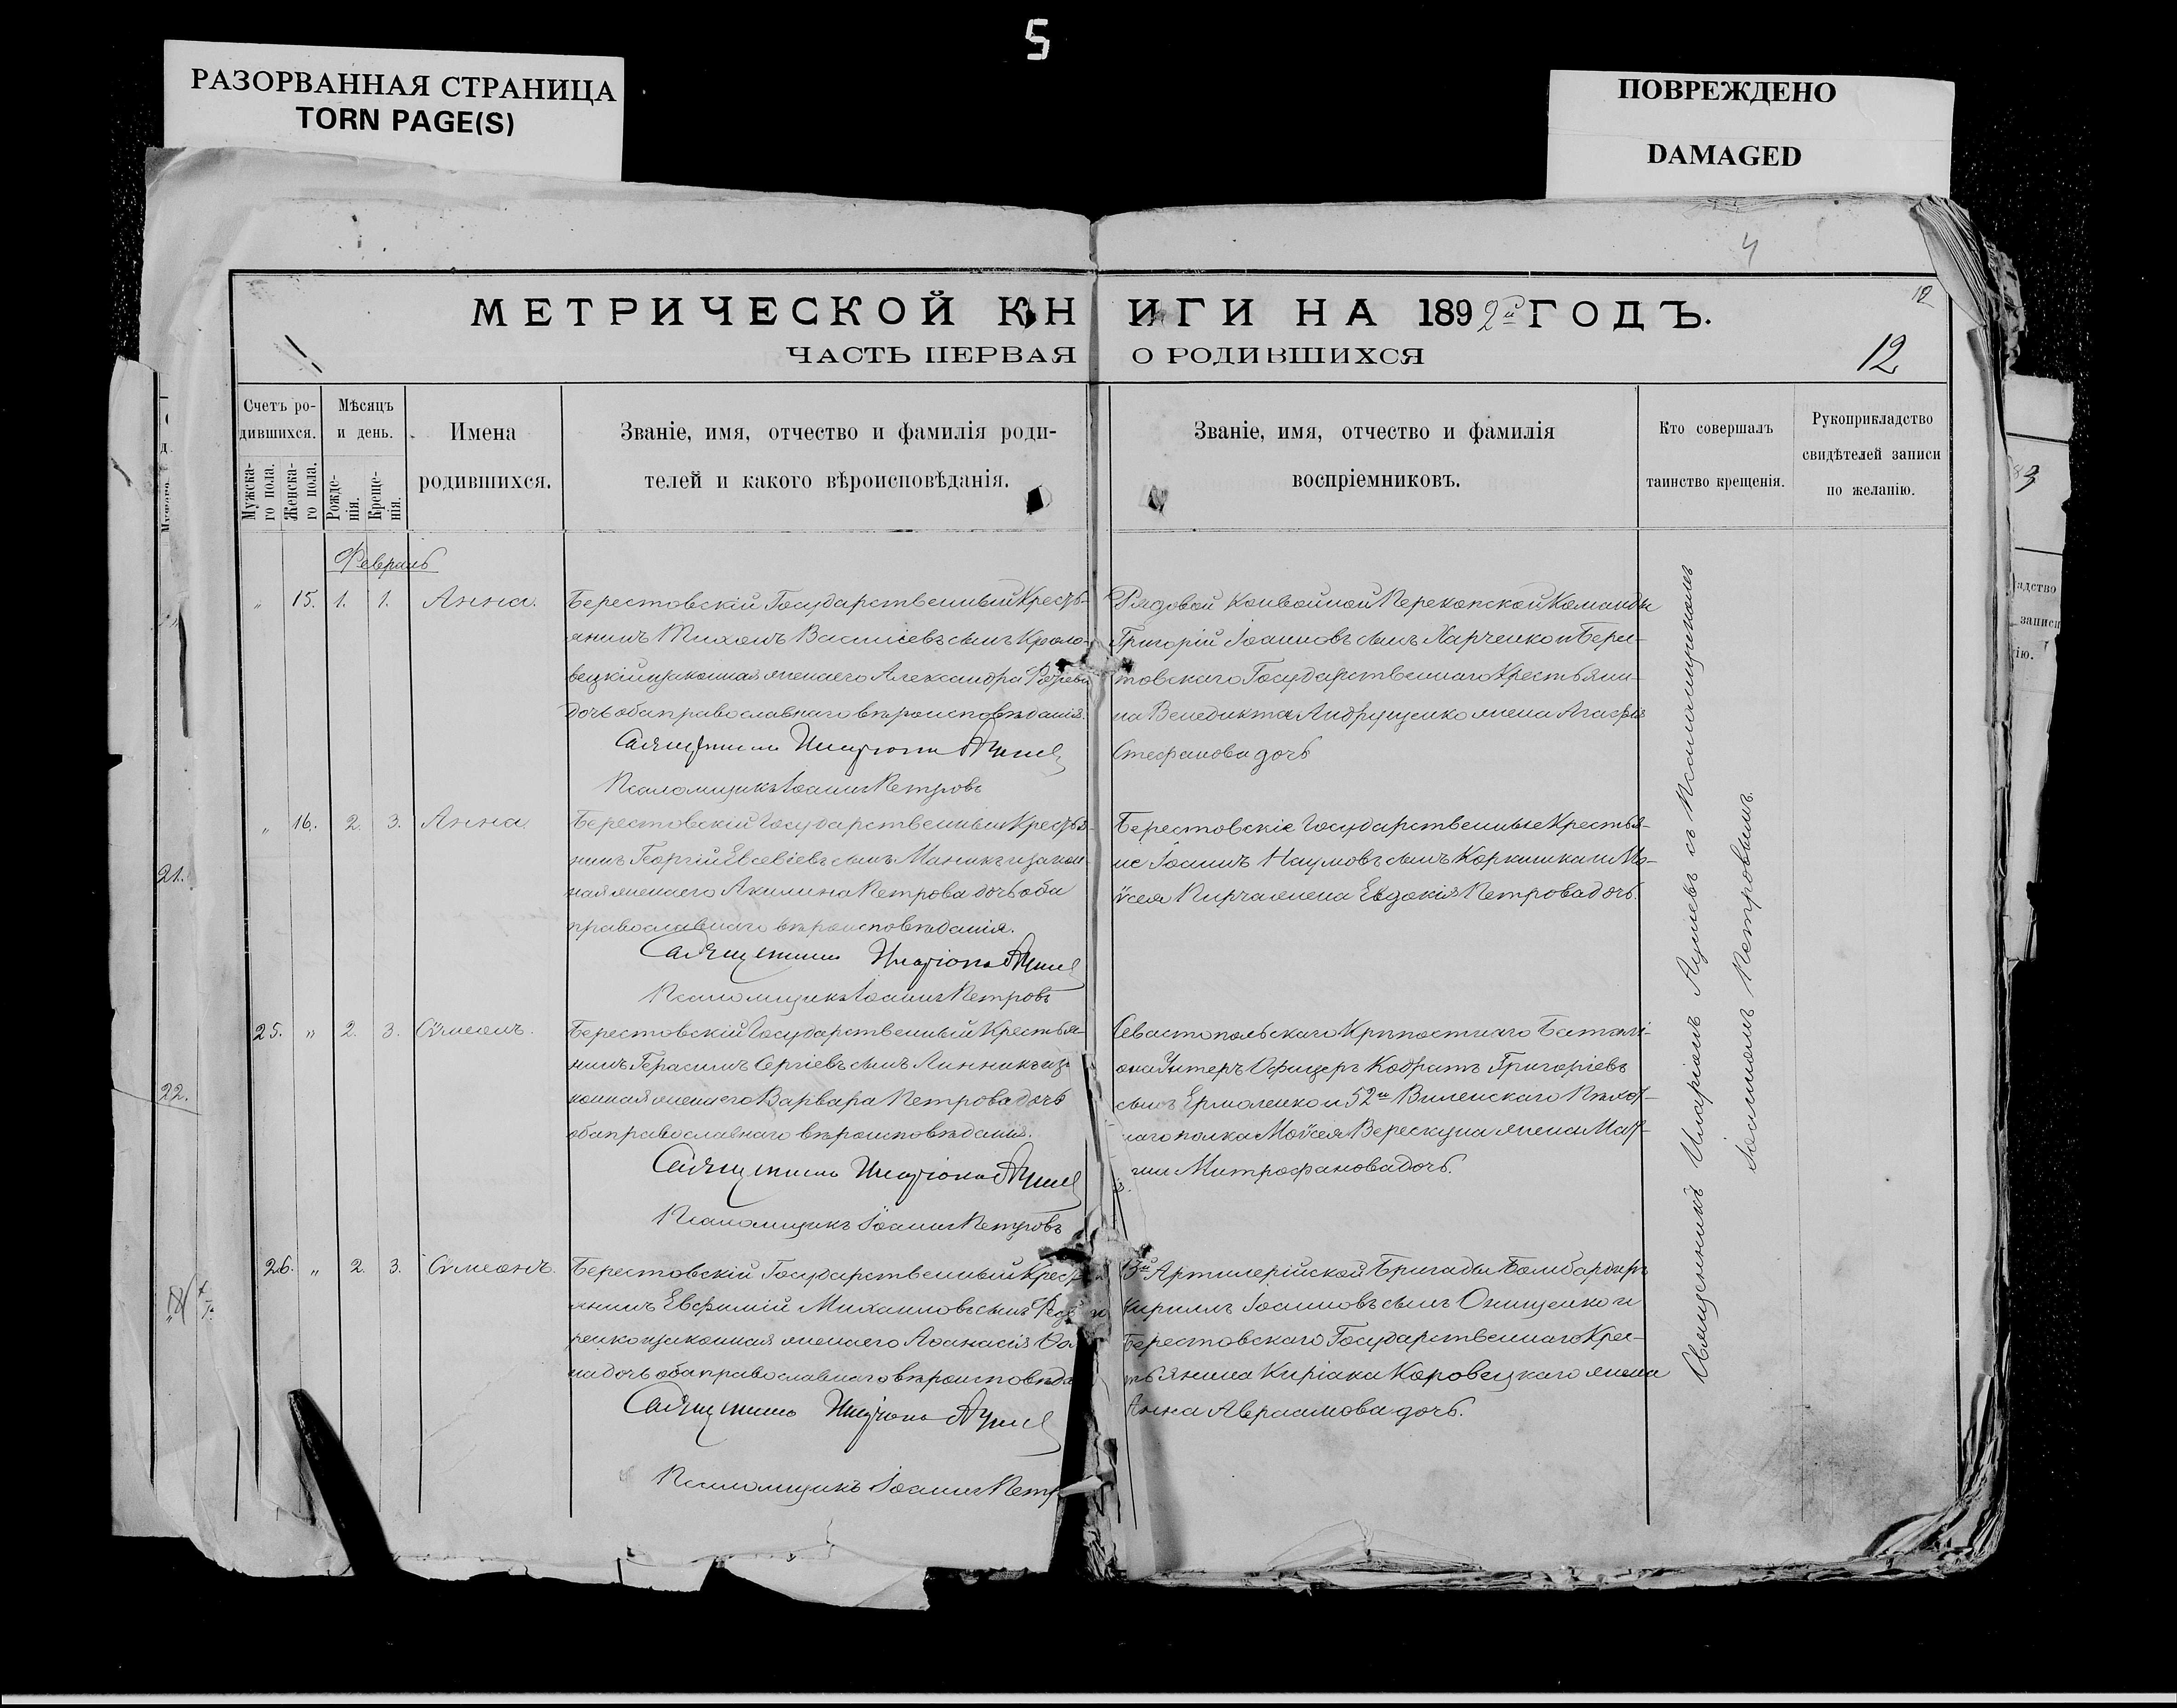 5
РАЗОРВАННАЯ СТРАНИЦА
TORN PAGE(S)
ПОВРЕЖДЕНО
DAMAGED
4
12
МЕТРИЧЕСКОЙ КНИГИ НА 1892й ГОДЪ.
ЧАСТЬ ПЕРВАЯ О РОДИВШИХСЯ
12
Счетъ ро-
дившихся.
Мужска-
го пола.
Женска-
го пола.
Мѣсяцъ
и день.
Рожде-
нія.
Креще-
нія.
Имена
родившихся.
Званіе, имя, отчество и фамилія роди-
телей и какого вѣроисповѣданія.
Званіе, имя, отчество и фамилія
воспріемниковъ.
Кто совершалъ
таинство крещенія.
Рукоприкладство
свидѣтелей записи
по желанію.
Февраль
„ 15. 1. 1. Анна.
Берестовскій Государственный Кресть-
янинъ Тихонъ Василіевъ сынъ
законная жена его Александра
дочь оба православнаго вѣроисповѣданія.
Священникъ
Псаломщикъ Іоаннъ Петровъ
Рядовой Конвойной Перекопской Команды
Григорій Іоанновъ сынъ Харченко и Берес-
товскаго Государственнаго Крестьяни-
на Венедикта Андрущенко жена Агафія
Стефанова дочь
„ 16. 2. 3. Анна
Берестовскій Государственный Крестья-
нинъ Георгій Евсевіевъ сынъ и закон-
ная жена его Акилина Петрова дочь оба
православнаго вѣроисповѣданія.
Священникъ
Псаломщикъ Іоаннъ Петровъ
Берестовскіе Государственные Крестья-
не Іоаннъ Наумовъ сынъ и Мо-
ѵсея Кирча жена Евдокія Петрова дочь.
25. „ 2. 3. Сѵмеонъ.
Берестовскій Государственный Крестья-
нинъ Герасимъ Сергіевъ сынъ Линникъ и за-
конная жена его Варвара Петрова дочь
оба православнаго вѣроисповѣданія.
Священникъ
Псаломщикъ Іоаннъ Петровъ
Севастопольскаго Крѣпостнаго Баталі-
она Унтеръ Офицеръ Кодратъ Григоріевъ
сынъ Ермоленко и 52го Виленскаго Пѣхот-
наго полка Моѵсея Верескуна жена
Митрофанова дочь.
26. „ 2. 3. Сѵмеонъ.
Берестовскій Государственный Крест
янинъ Евфимій Михаиловъ сынъ
ренко и законная жена его Аѳанасія
на дочь оба православнаго вѣроисповѣда
Священникъ
Псаломщикъ Іоаннъ Петр
Артилерійской Бригады Бомбардиръ
Кириллъ Іоанновъ сынъ Онищенко и
Берестовскаго Государственнаго Крес-
тьянина Киріака Коровецкаго жена
Анна Авраамова дочь.
Священникъ Иларіонъ съ Псаломщикомъ
Іоанномъ Петровымъ.
21.
22.
адство
записи
ію.